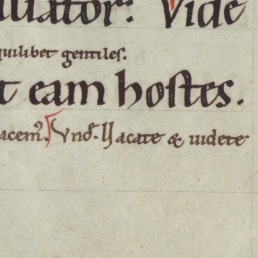 lliator: Vide
quilibet gentiles.
t eam hostes.
acem. Vnd. Uacate & uidete